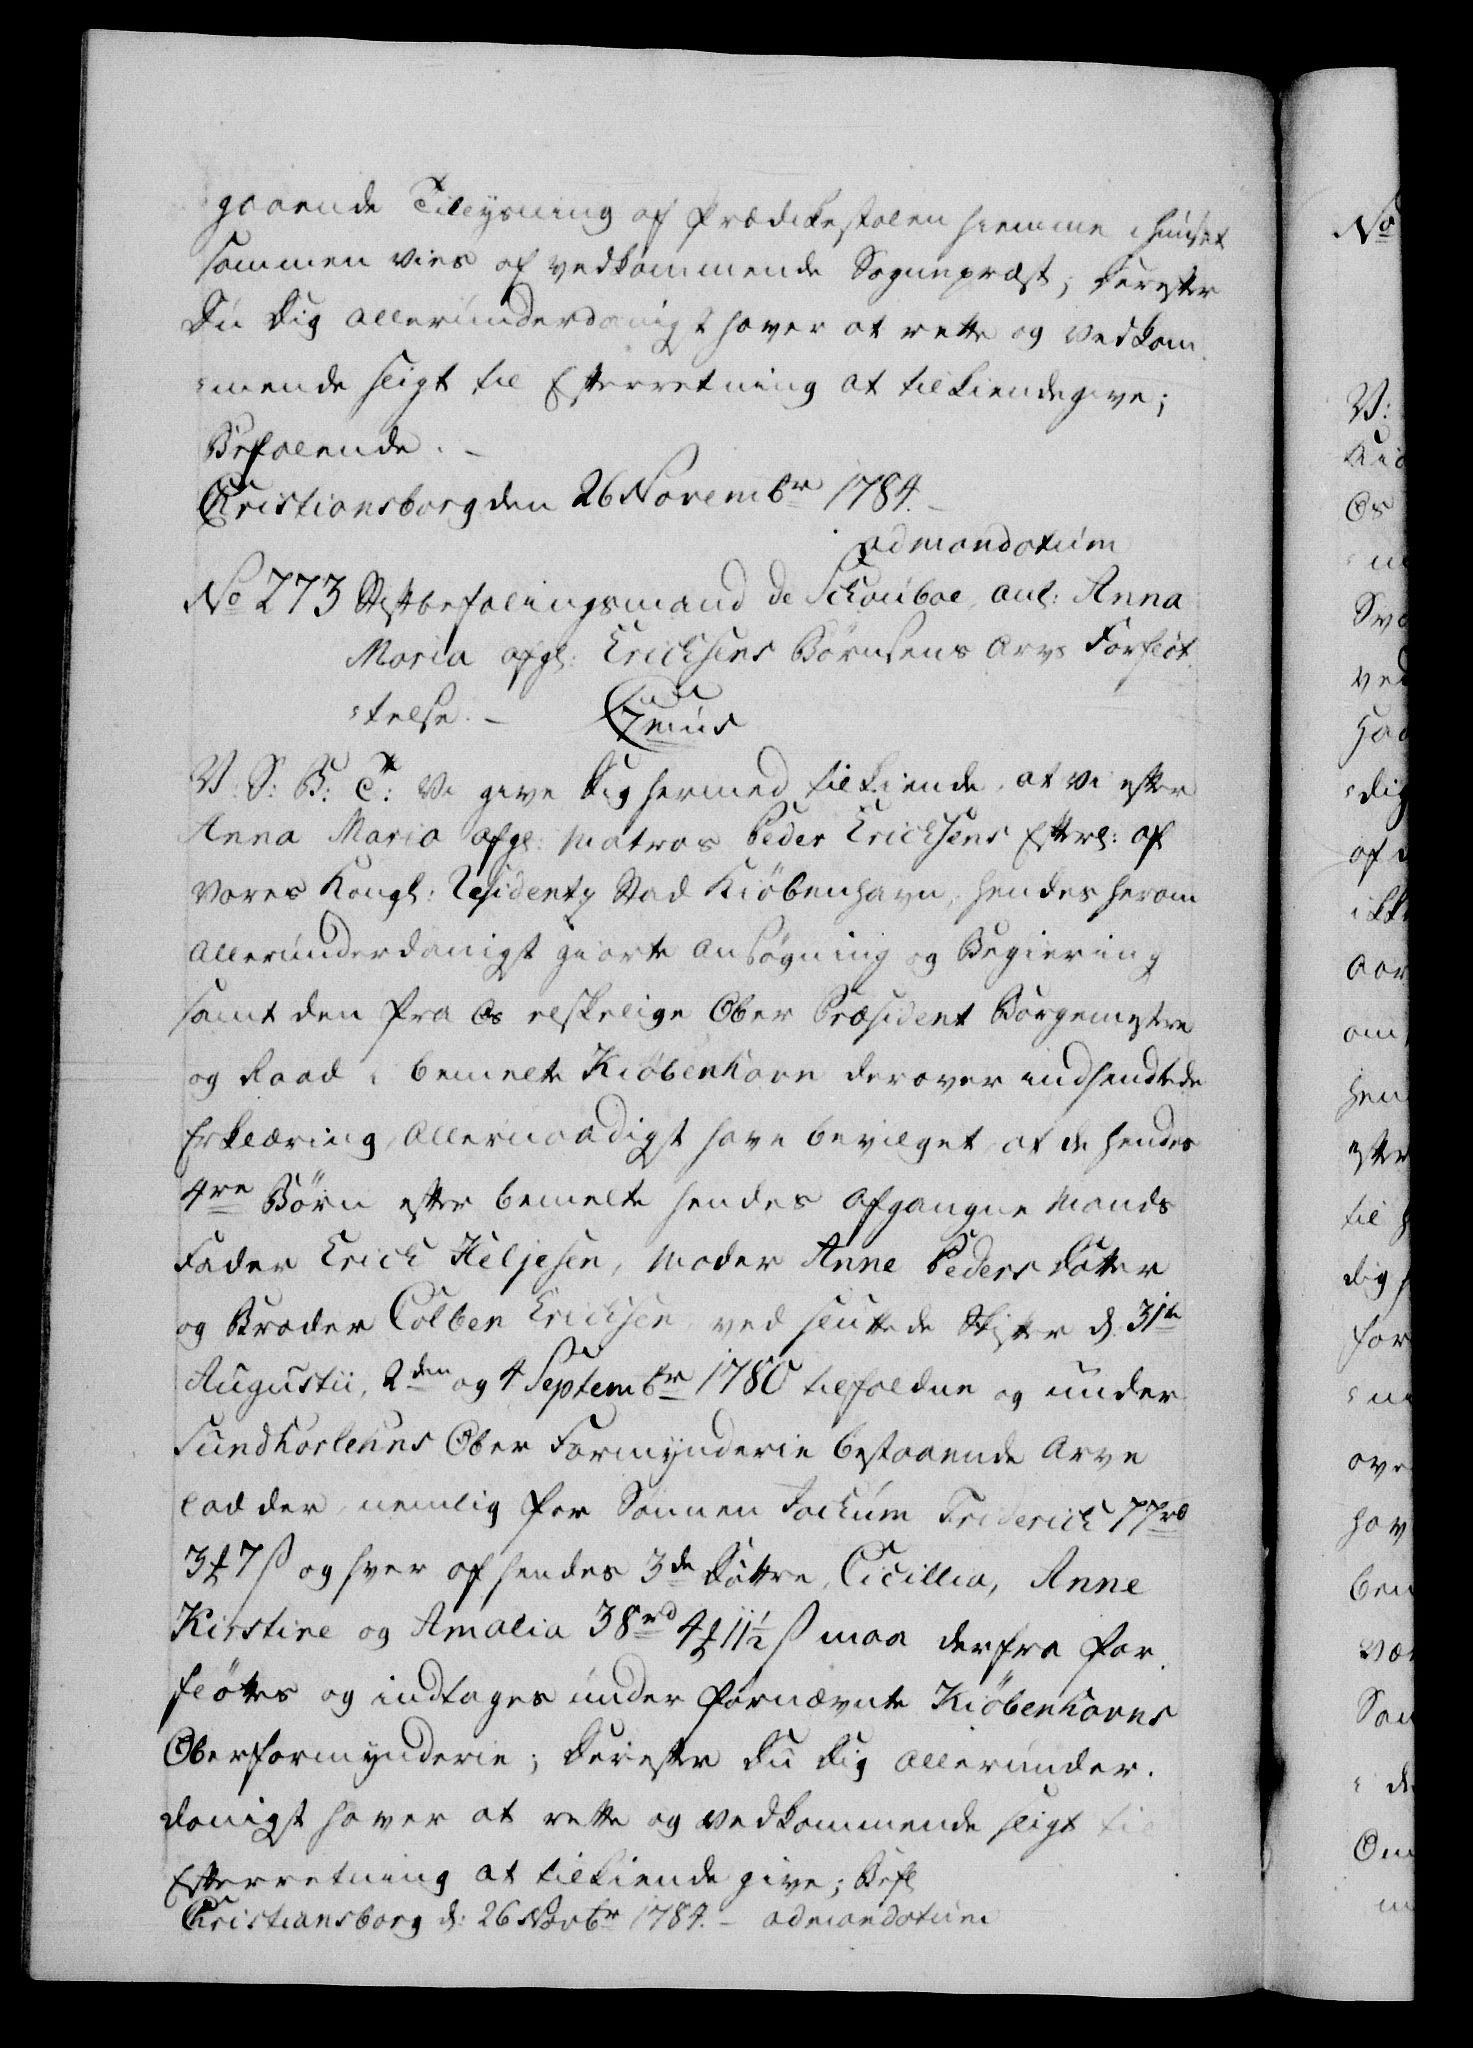 gaaende Tillysning af Prædikestolen hiemme i Huuset
sammen vies af vedkommende Sognepræst; Derefter
Du Dig allerunderdanigst haver at rette og vedkom¬
¬mende sligt til Efterretning at tilkiendegive;
Befalende. –
Christiansborg den 26 Novembr 1784. –
ad mandatum
No 273 Stiftbefalingsmand de Schouboe, anl: Anna
Maria afgl: Erichsens Børnsens Arvs Forfløt¬
¬telse. –
V: S: B: T: Vi give Dig hermed tilkiende, at vi efter
Anna Maria afgl: Matros Peder Erichsens Efterl: af
Vores Kongl: Residentz Stad Kiøbenhavn, hendes herom
allerunderdanigst giorte Ansøgning og Begiering
samt den fra Os elskelige Ober Præsident Borgemestere
og Raad i bemelte Kiøbenhavn derover indsendte
Erklæring, allernaadigst have bevilget, at de hendes
4re Børn efter bemelte hendes afgangne Mands
Fader Erich Heljesen, Moder Anne Peders Datter
og Broder Colben Erichsen ved sluttede Skifter d. 31te
Augustii, 2den og 4 Septembr 1780 tilfaldne og under
Sundhorlehns Ober Formynderie bestaaende Arve
lodder, nemlig for Sønnen Jochum Friderich 77rd
3 ₰ 7 ß og hver af hendes 3de Døttre, Cicillia, Anne
Kirstine og Amalia 38rd 4 ₰ 11½ ß maa derfra for¬
fløttes og indtages under fornævnte Kiøbenhavns
Oberformynderie; Derefter Du Dig allerunder¬
danigst haver at rette og vedkommende sligt til
Efterretning at tilkiende give; Befl
Christiansborg d: 26 Novbr 1784. – ad mandatum